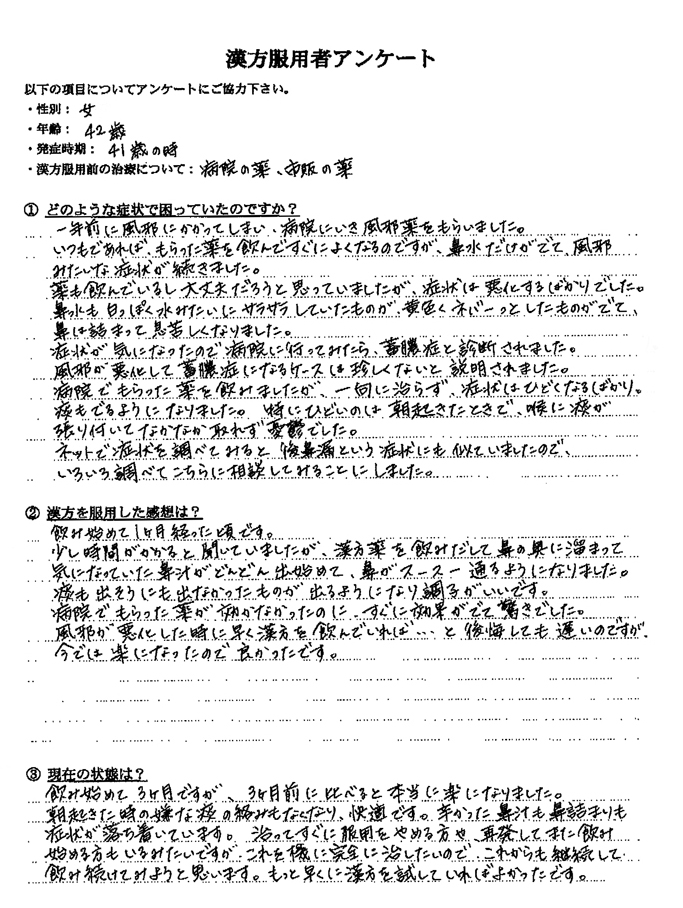 漢方服用者アンケート
以下の項目についてアンケートにご協力下さい。
・性別： 女
・年齢： 42歳
・発症時期： 41歳の時
・漢方服用前の治療について： 病院の薬、市販の薬
① どのような症状で困っていたのですか？
一年前に風邪にかかってしまい、病院にいき風邪薬をもらいました。
いつもであれば、もらった薬を飲んですぐによくなるのですが、鼻水だけがでて、風邪
みたいな症状が続きました。
薬も飲んでいるし大丈夫だろうと思っていましたが、症状は悪化するばかりでした。
鼻水も白っぽく水みたいにサラサラしていたものが、黄色くネバーっとしたものがでて、
鼻は詰まって息苦しくなりました。
症状が気になったので病院に行ってみたら、蓄膿症と診断されました。
風邪が悪化して蓄膿症になるケースは珍しくないと説明されました。
病院でもらった薬を飲みましたが、一向に治らず、症状はひどくなるばかり。
痰もでるようになりました。特にひどいのは朝起きたときで、喉に痰が
張り付いてなかなか取れず憂鬱でした。
ネットで症状を調べてみると後鼻漏という症状にも似ていましたので、
いろいろ調べてこちらに相談してみることにしました。
② 漢方を服用した感想は？
飲み始めて1ヶ月経った頃です。
少し時間がかかると聞いていましたが、漢方薬を飲みだして鼻の奥に溜まって
気になっていた鼻汁がどんどん出始めて、鼻がスースー通るようになりました。
痰も出そうにも出なかったものが出るようになり調子がいいです。
病院でもらった薬が効かなかったのに、すぐに効果がでて驚きでした。
風邪が悪化した時に早く漢方を飲んでいれば…と後悔しても遅いのですが、
今では楽になったので良かったです。
③ 現在の状態は？
飲み始めて3ヶ月ですが、3ヶ月前に比べると本当に楽になりました。
朝起きた時の嫌な痰の絡みもなくなり、快適です。辛かった鼻汁も鼻詰まりも
症状が落ち着いています。治ってすぐに服用をやめる方や、再発してまた飲み
始める方もいるみたいですが、これを機に完全に治したいので、これからも継続して
飲み続けてみようと思います。もっと早くに漢方を試していればよかったです。